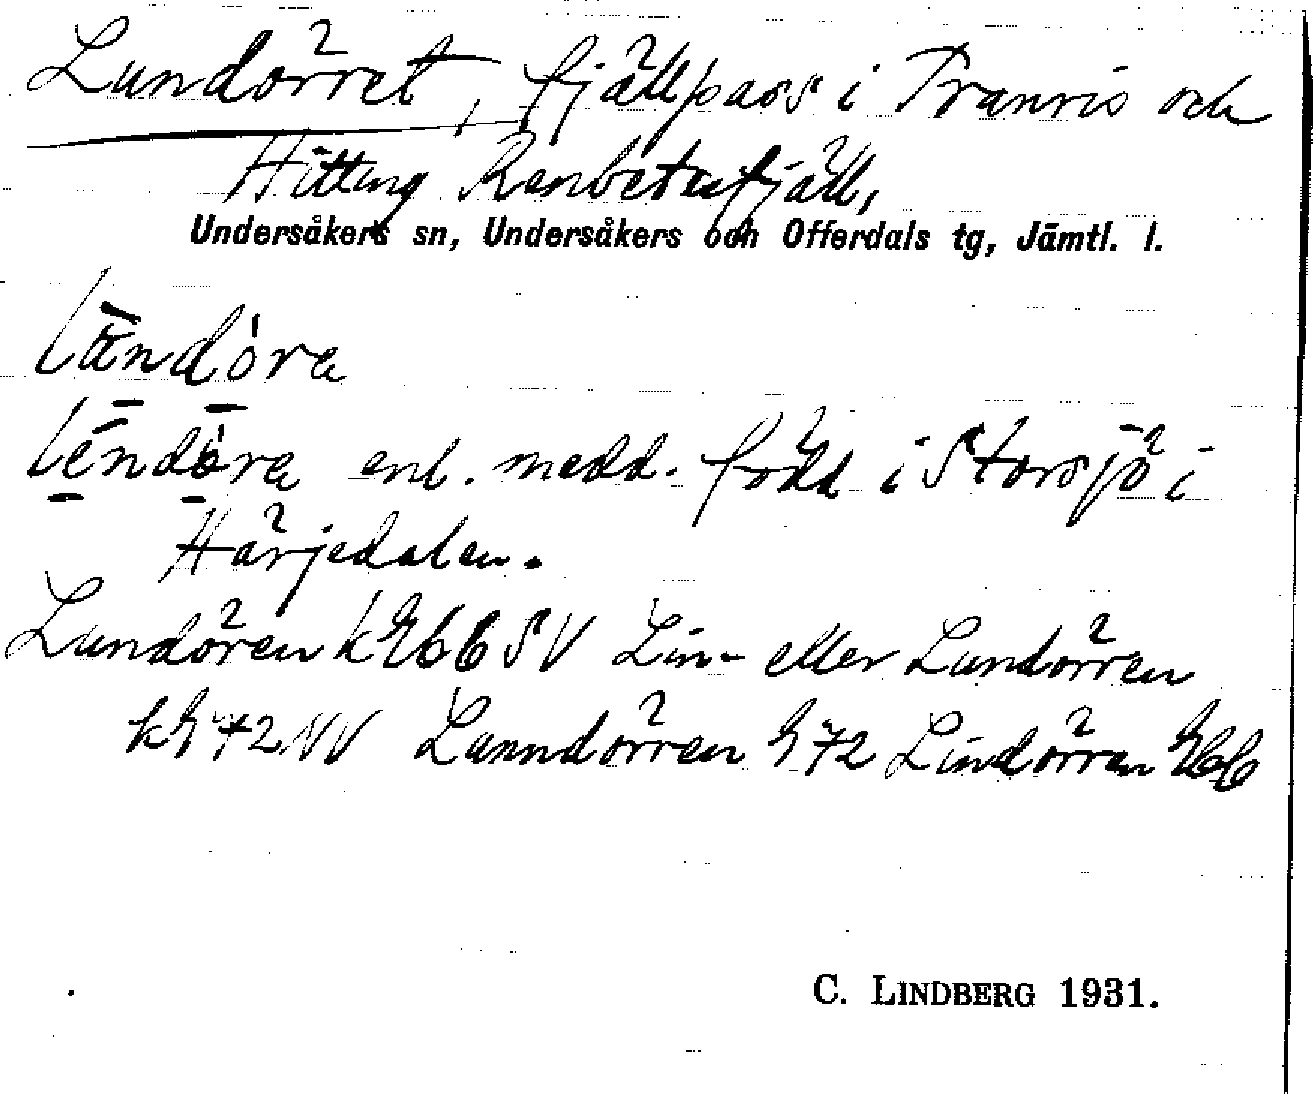 Lundörret, fjällpass i Tranris och
Hitteng Renbetesfjäll,
Undersåkers sn, Undersåkers och Offerdals tg, Jämtl. l.
enl. medd. född i Storsjö i
Härjedalen.
Lundören k 66 SV Lin- eller Lundörren
72 NV Lunndörren 72 Lindörren 66
C. LINDBERG 1931.